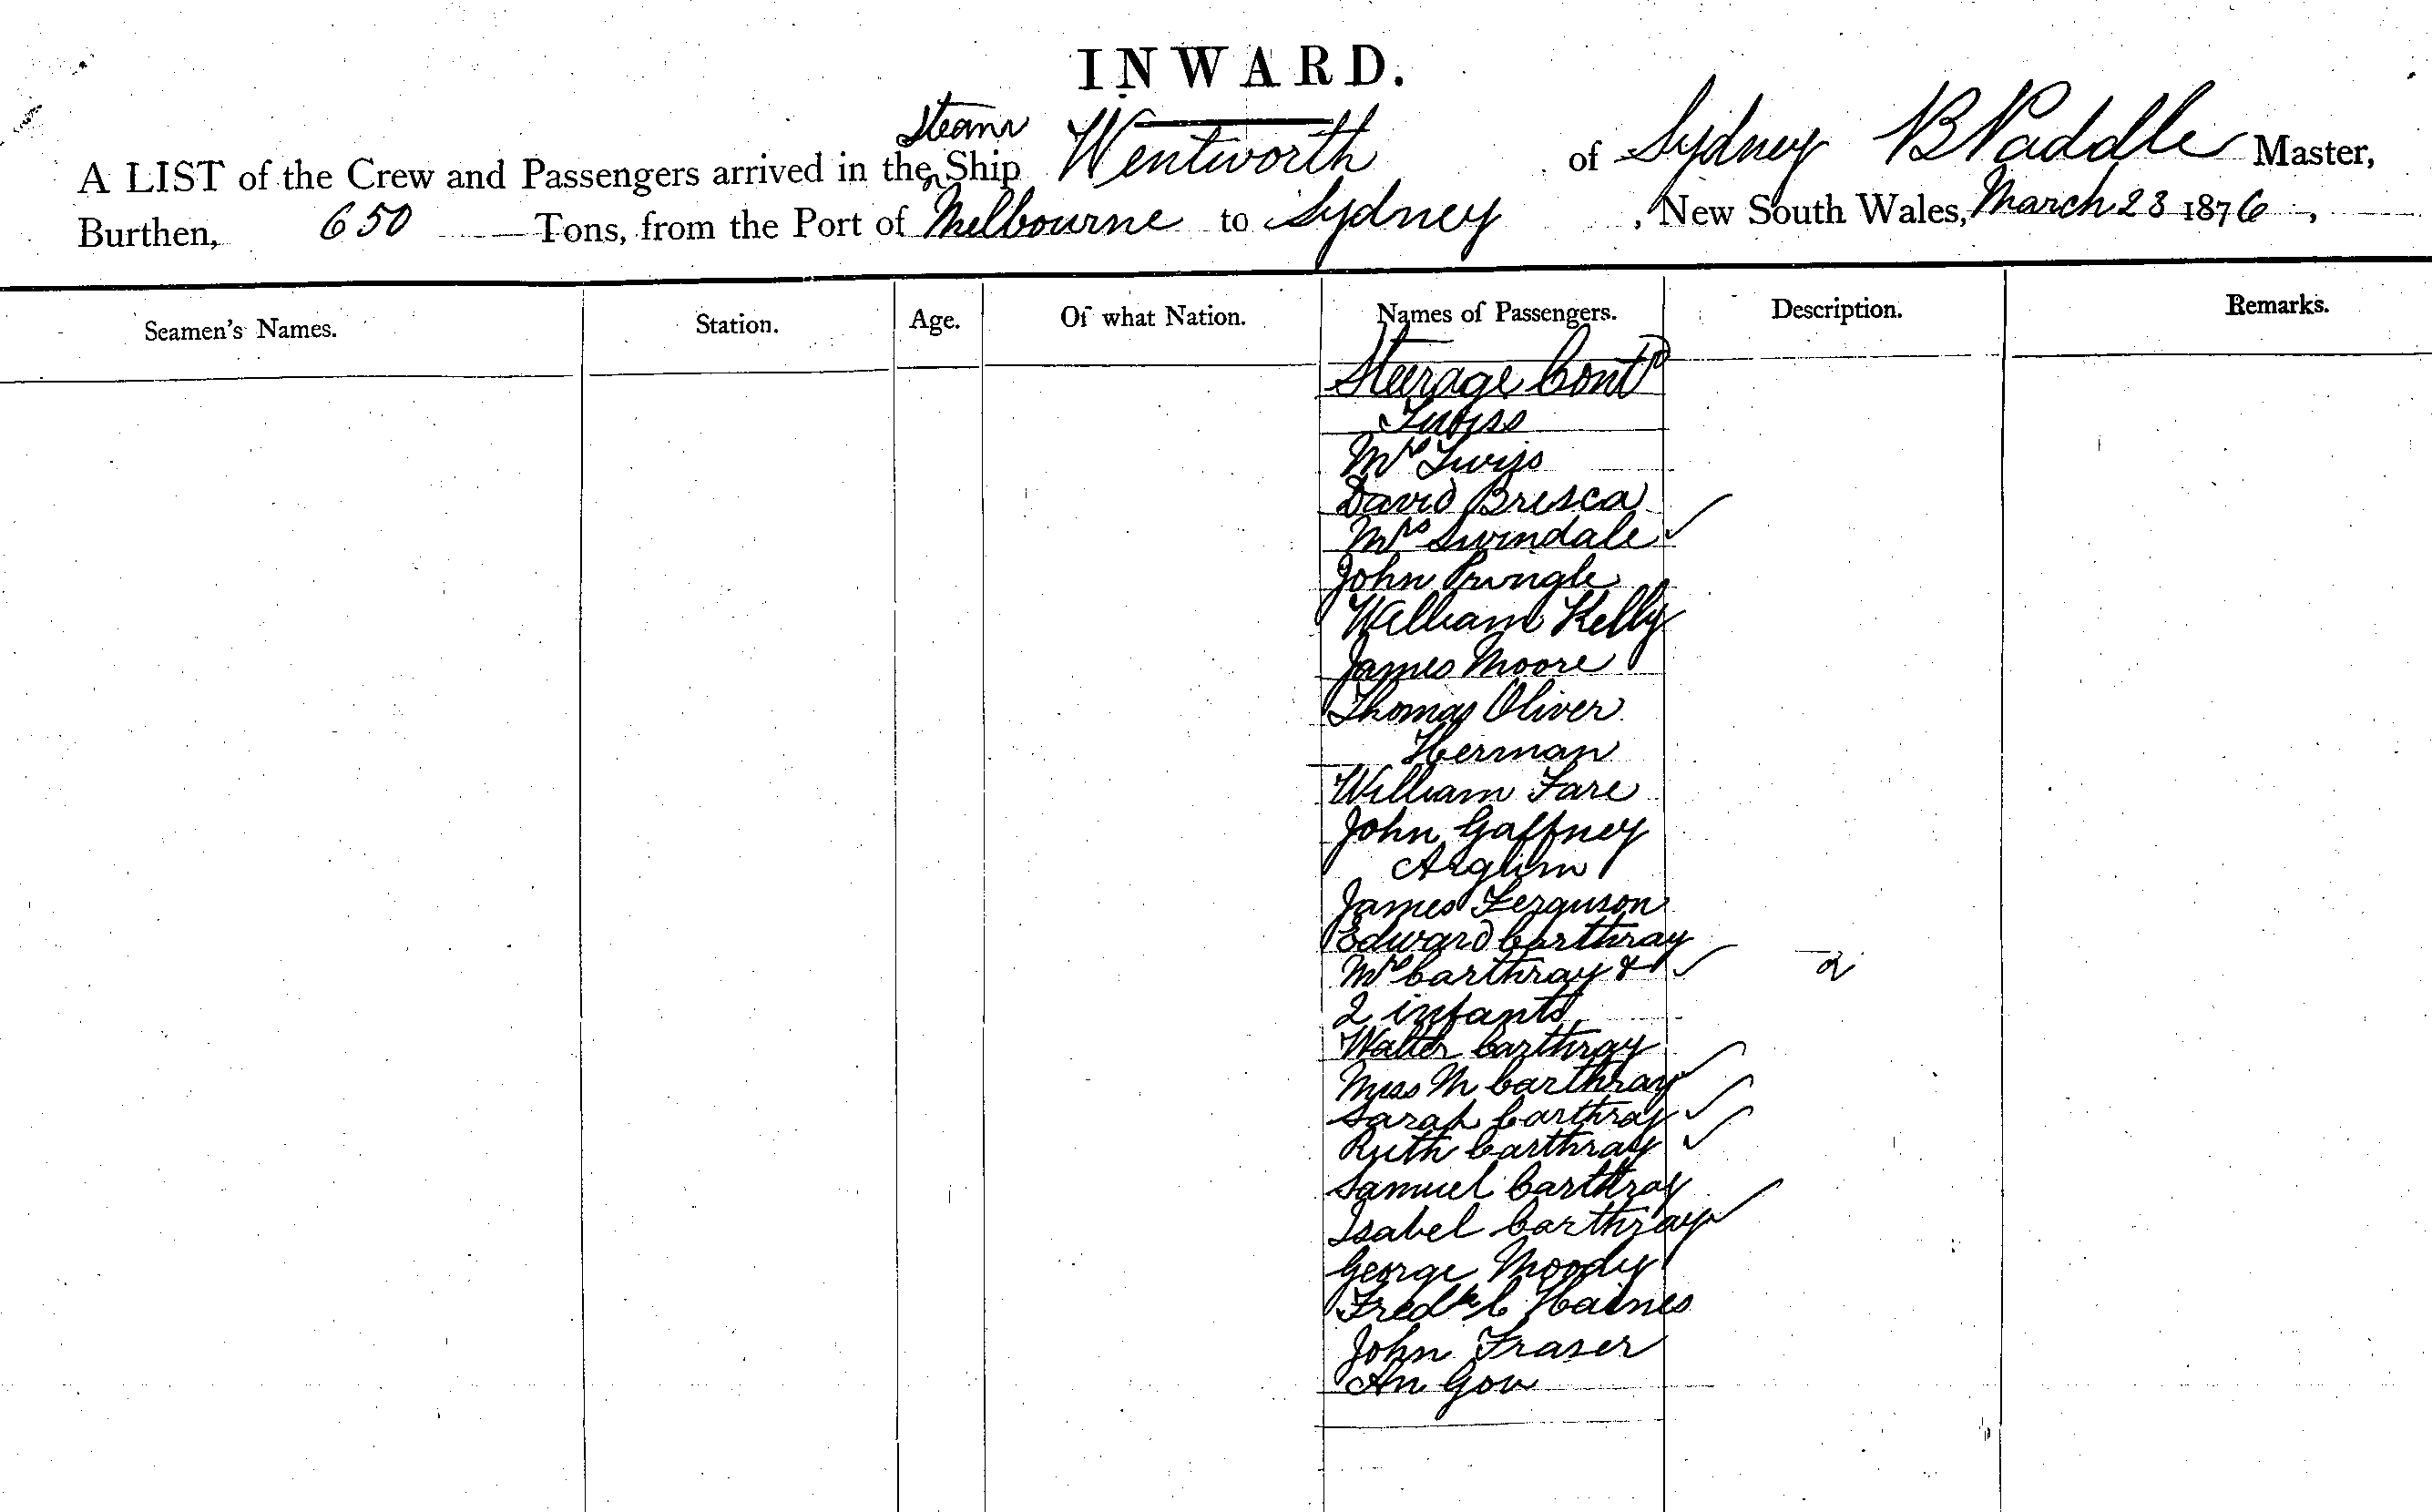 INWARD.
A LIST of the Crew and Passengers arrived in the Steamr Ship Wentworth of Sydney B Paddle Master,
Burthen, 650 Tons, from the Port of Melbourne to Sydney, New South Wales, March 23 1876,
Seamen's Names. Station. Age. Of what Nation. Names of Passengers. Description. Remarks.
Steerage Contd
Twiss
Mrs Twiss
David Bresca
Mrs Swindale
John Pringle
William Kelly
James Moore
Thomas Oliver
Herman
William Fare
John Gaffney
James Ferguson
Edward Carthray
Mrs Carthray & 2
2 infants
Walter Carthray
Miss M Carthray
Sarah Carthray
Ruth Carthray
Samuel Carthray
Isabel Carthray
George Moody
Fredk C Haines
John Fraser
An Gow